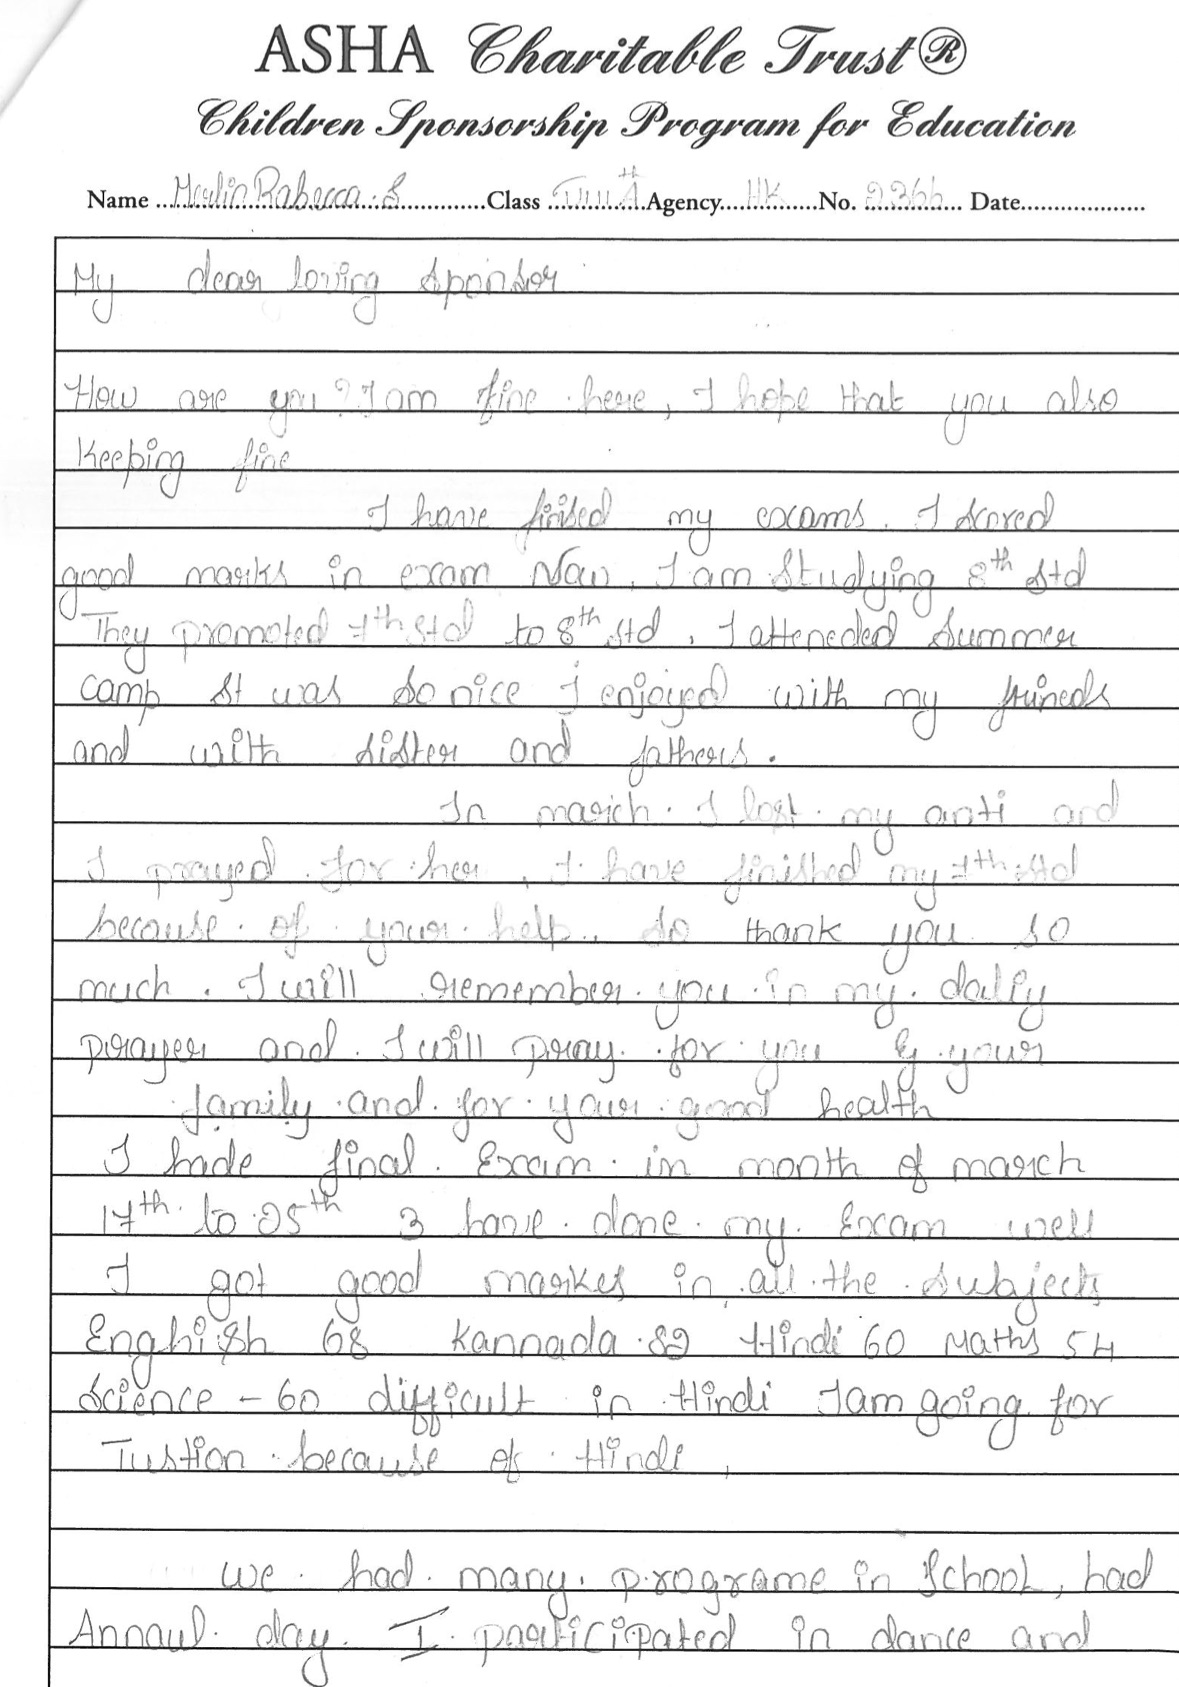 ASHA Charitable Trust®
Children Sponsorship Program for Education
Name Merlin Rabecca. S Class VIII th A Agency HK No. 2366 Date
My dear loving sponsor
How are you? I am fine here, I hope that you also
Keeping fine
I have finised my exams. I scored
good marks in exam Now, I am studying 8th std
They promoted 7th std to 8th std. I atteneded summer
camp It was so nice I enjoyed with my frineds
and with sister and fathers.
In march. I lost my anti and
I prayed for her, I have finished my 7th std
because of your help. so thank you so
much. I will remember you in my daliy
prayer and I will pray for you & your
family and for your good health
I hade final Exam in month of march
17th to 25th I have done my Exam well
I got good markes in all the subjects
Enghish 68 Kannada 82 Hindi 60 Maths 54
Science - 60 difficult in Hindi I am going for
Tustion because of Hindi,
we had many programe in school, had
Annaul day I participated in dance and